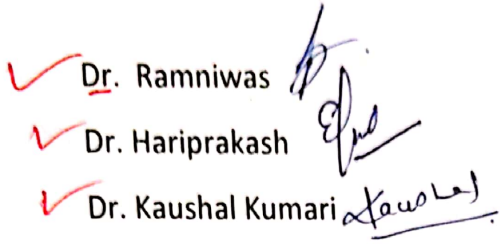 Dr. Ramniwas
Dr. Hariprakash
Dr. Kaushal Kumari Kaushal